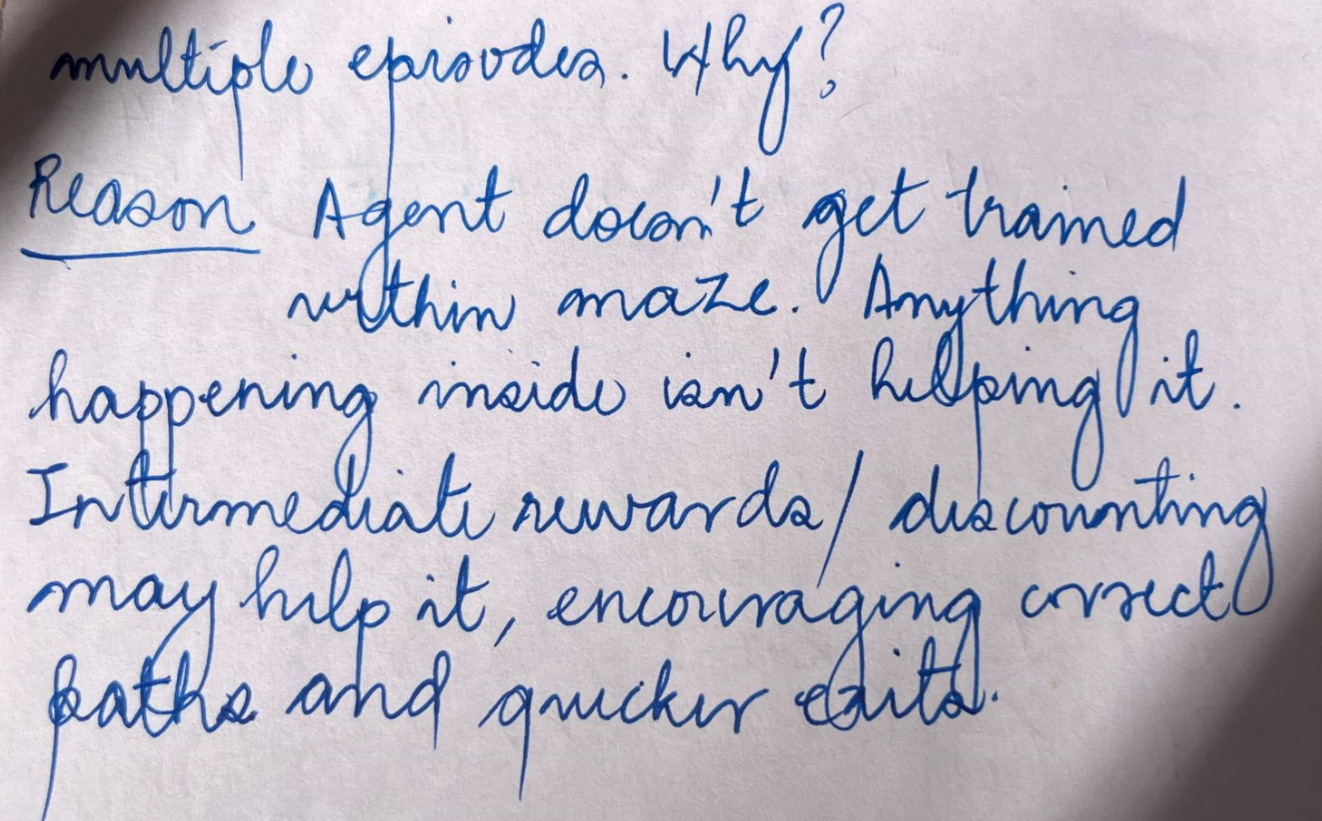 multiple episodes. Why?
Reason Agent doesn't get trained
within maze. Anything
happening inside isn't helping it.
Intermediate rewards/discounting
may help it, encouraging correct
paths and quicker exits.